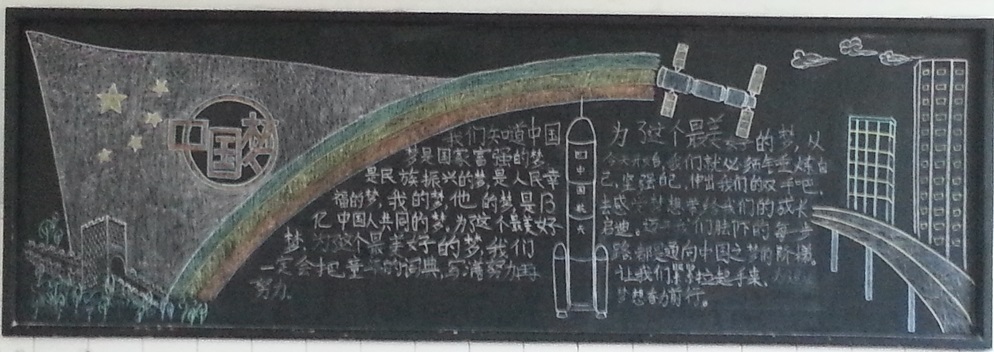 中国梦
我们知道中国
梦是国家富强的梦
是民族振兴的梦,是人民幸
福的梦,我的梦,他的梦是13
亿中国人共同的梦,为了这个最美好
梦,为了这个最美好的梦,我们
一定会把童年的词典,写满努力再
努力.
中国航天
为了这个最美的梦,从
今天开始,我们就必须
己,坚强自己,伸出我们的双手吧,
去感受梦想带给我们的成长
启迪。我们脚下的每一步
路,都通向中国之梦的阶梯。
让我们紧紧拉起手来,
梦想奋力前行。